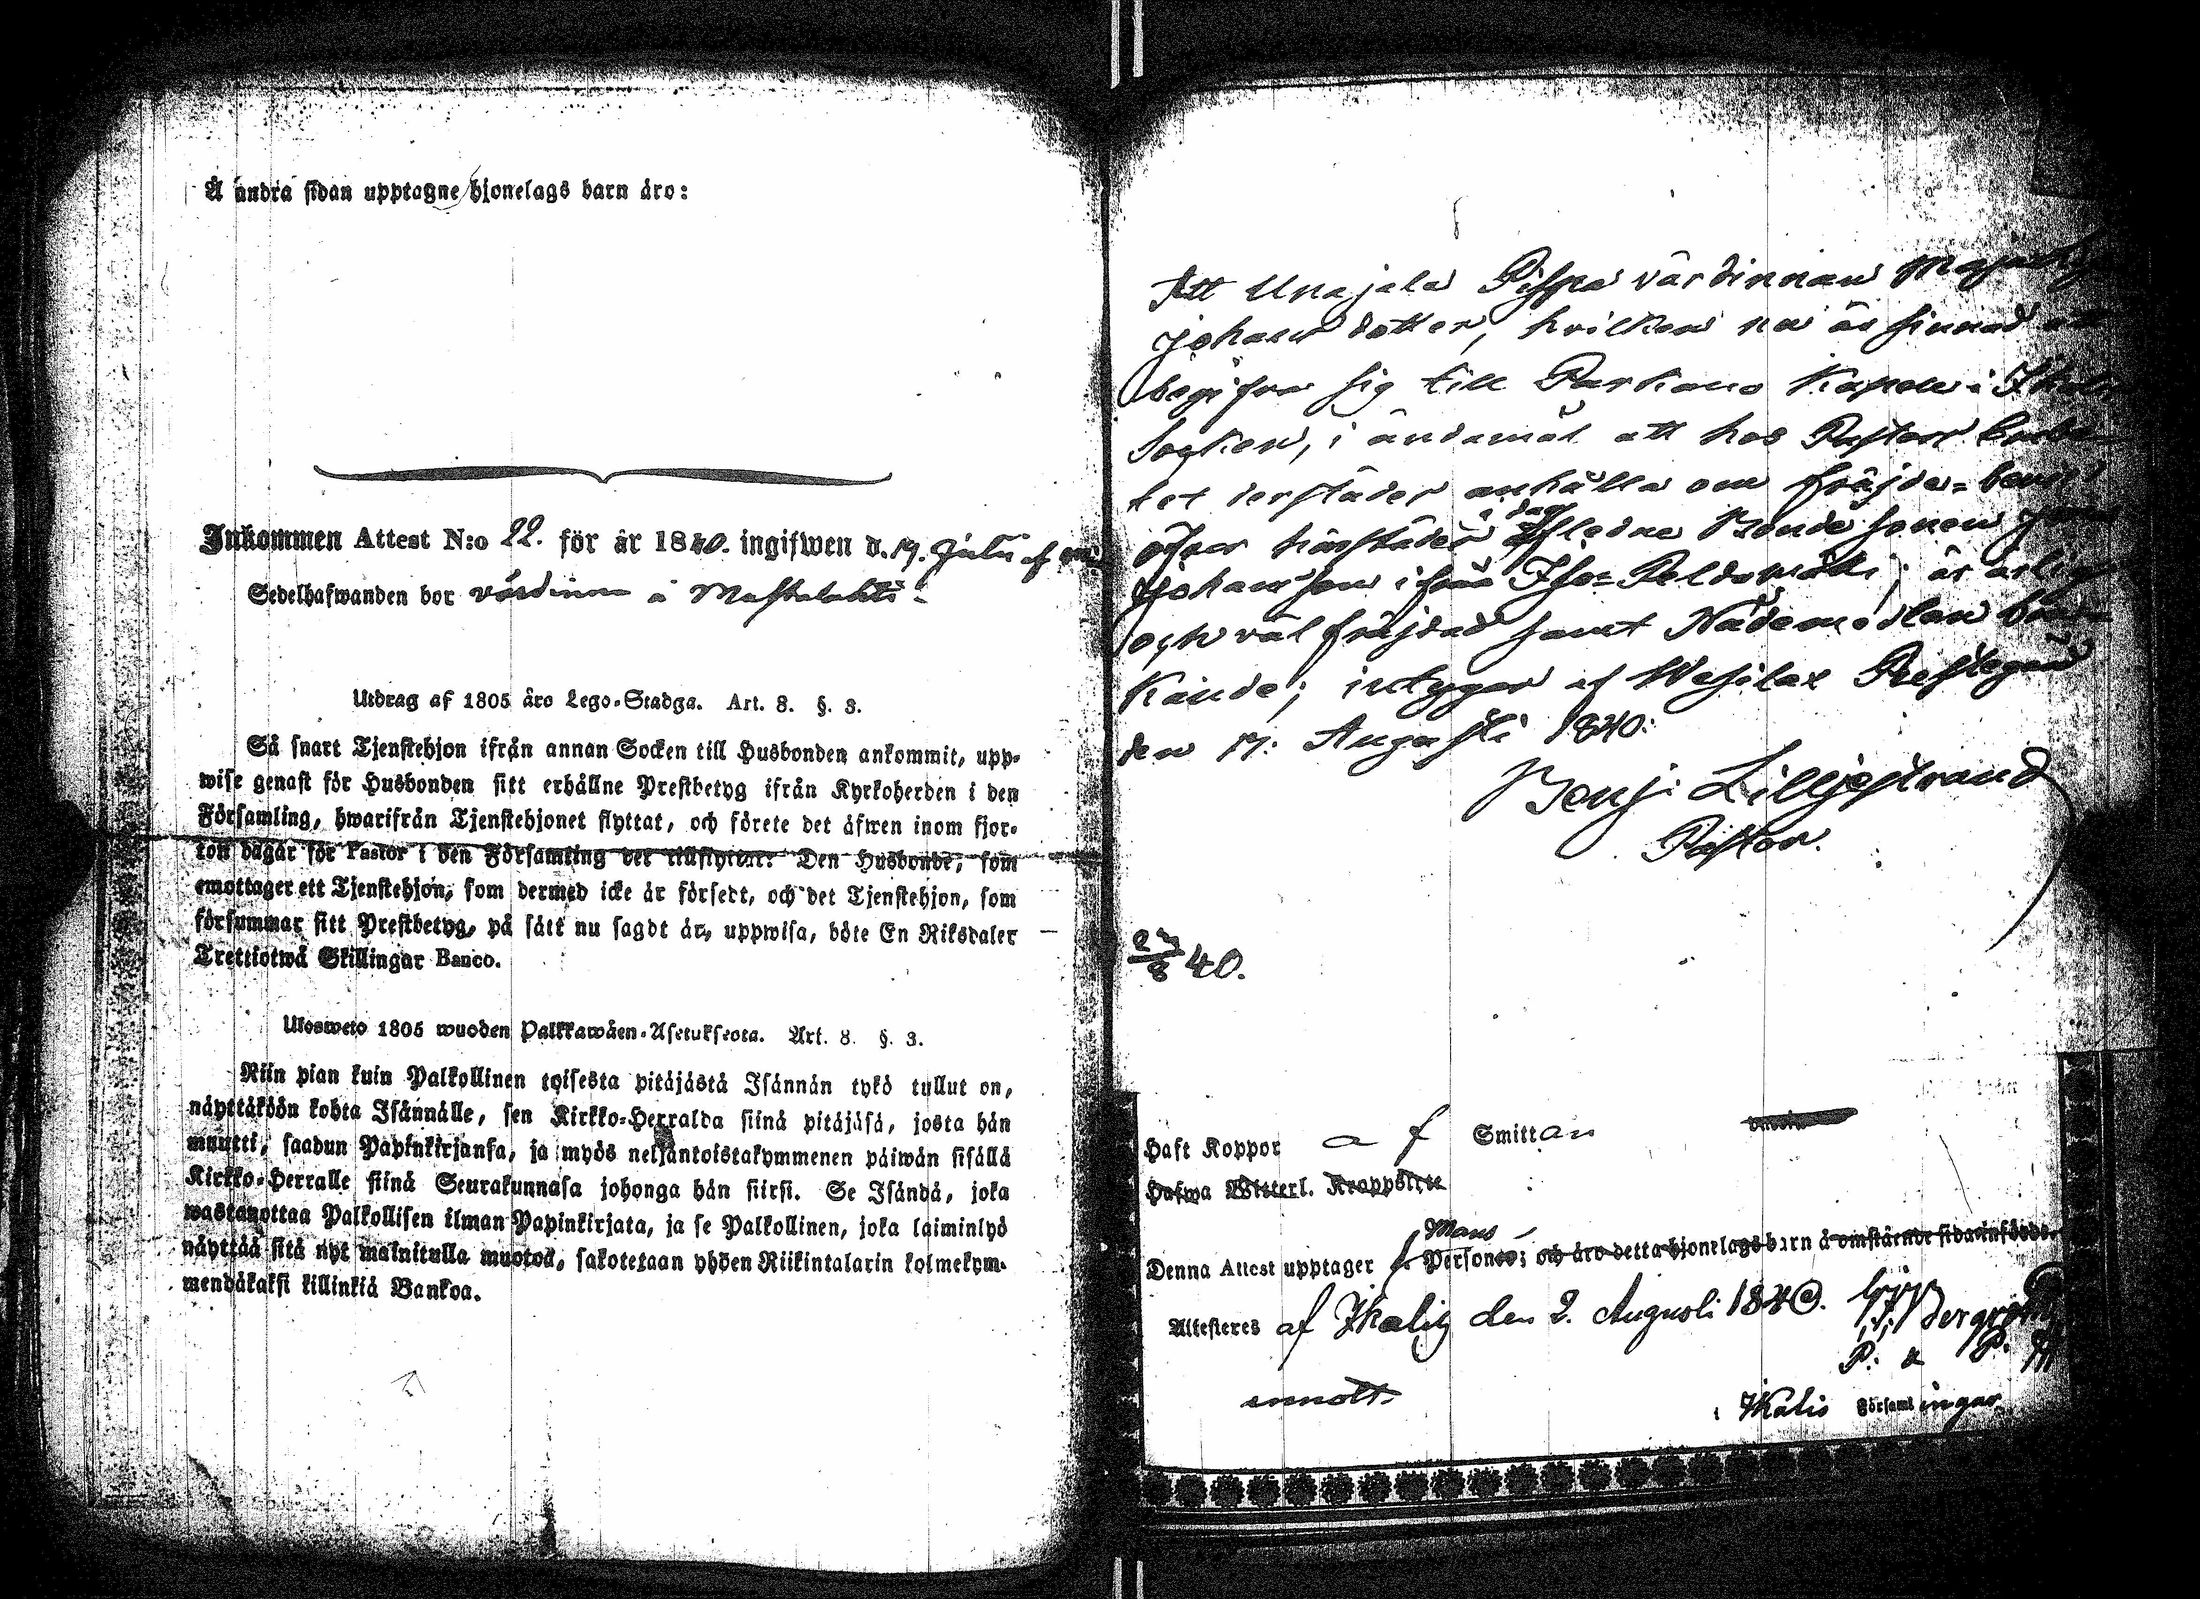 Å andra sidan upptagne hjonelags barn äro:
Inkommen Attest N:o 22. för år 1840. ingifwen d. 19. Juli af
Sedelhafwanden bor värdinna å Mastalahti
Utdrag af 1805 års Lego-Stadga. Art. 8. §. 3.
Så snart Tjenstehjon ifrån annan Socken till Husbonden ankommit, upp-
wise genast för Husbonden sitt erhållne Prestbetyg ifrån Kyrkoherden i den
Församling, hwarifrån Tjenstehjonet flyttat, och förete det äfwen inom fjor-
ton dagar för Pastor i den Församling det tillflyttar. Den Husbonde, som
emottager ett Tjenstehjon, som dermed icke är försedt, och det Tjenstehjon, som
försummar sitt Prestbetyg, på sätt nu sagdt är, uppwisa, böte En Riksdaler
Trettiotwå Skillingar Banco.
Ulosweto 1805 wuoden Palkkawäen-Asetuksesta. Art. 8. §. 3.
Niin pian kuin Palkollinen toisesta pitäjästä Isännän tykö tullut on,
näyttäköön kohta Isännälle, sen Kirkko-Herralda siinä pitäjäsä, josta hän
muutti, saadun Papinkirjansa, ja myös neljäntoistakymmenen päiwän sisällä
Kirkko-Herralle siinä Seurakunnasa johonga hän siirsi. Se Isändä, joka
wastanottaa Palkollisen ilman Papinkirjata, ja se Palkollinen, joka laiminlyö
näyttää sitä nyt mainitulla muotoa, sakotetaan yhden Riikintalarin kolmekym-
mendäkaksi killinkiä Bankoa.
Att Unajala Pispa värdinnan Maja
Johans dotter, hvilken nu är sinnad
begifva sig till Parkano Kapell i
Socken, i ändamål att hos Pastors Embe-
tet derstädes anhålla om fräjde-bevis
öfver härstädes i dag afledne Bonde sonen
Johansson ifrån Iso-Peldomäki; är ärlig
och väl fräjdad samt Nådemedlen
Kände; intygar af Wesilax Prestegård
den 17. Augusti 1840.
Benj. Lilljestrand
Pastor.
27/8 40.
Haft Koppor af Smittan
Hafwa Witterl. Krappslitit
Mans
Denna Attest upptager f. Person; och äro detta hjonelags barn å omstående sida införde.
Attesteras af Ikalis den 2. Augusti 1840.
P. &
i Ikalis Församlingar